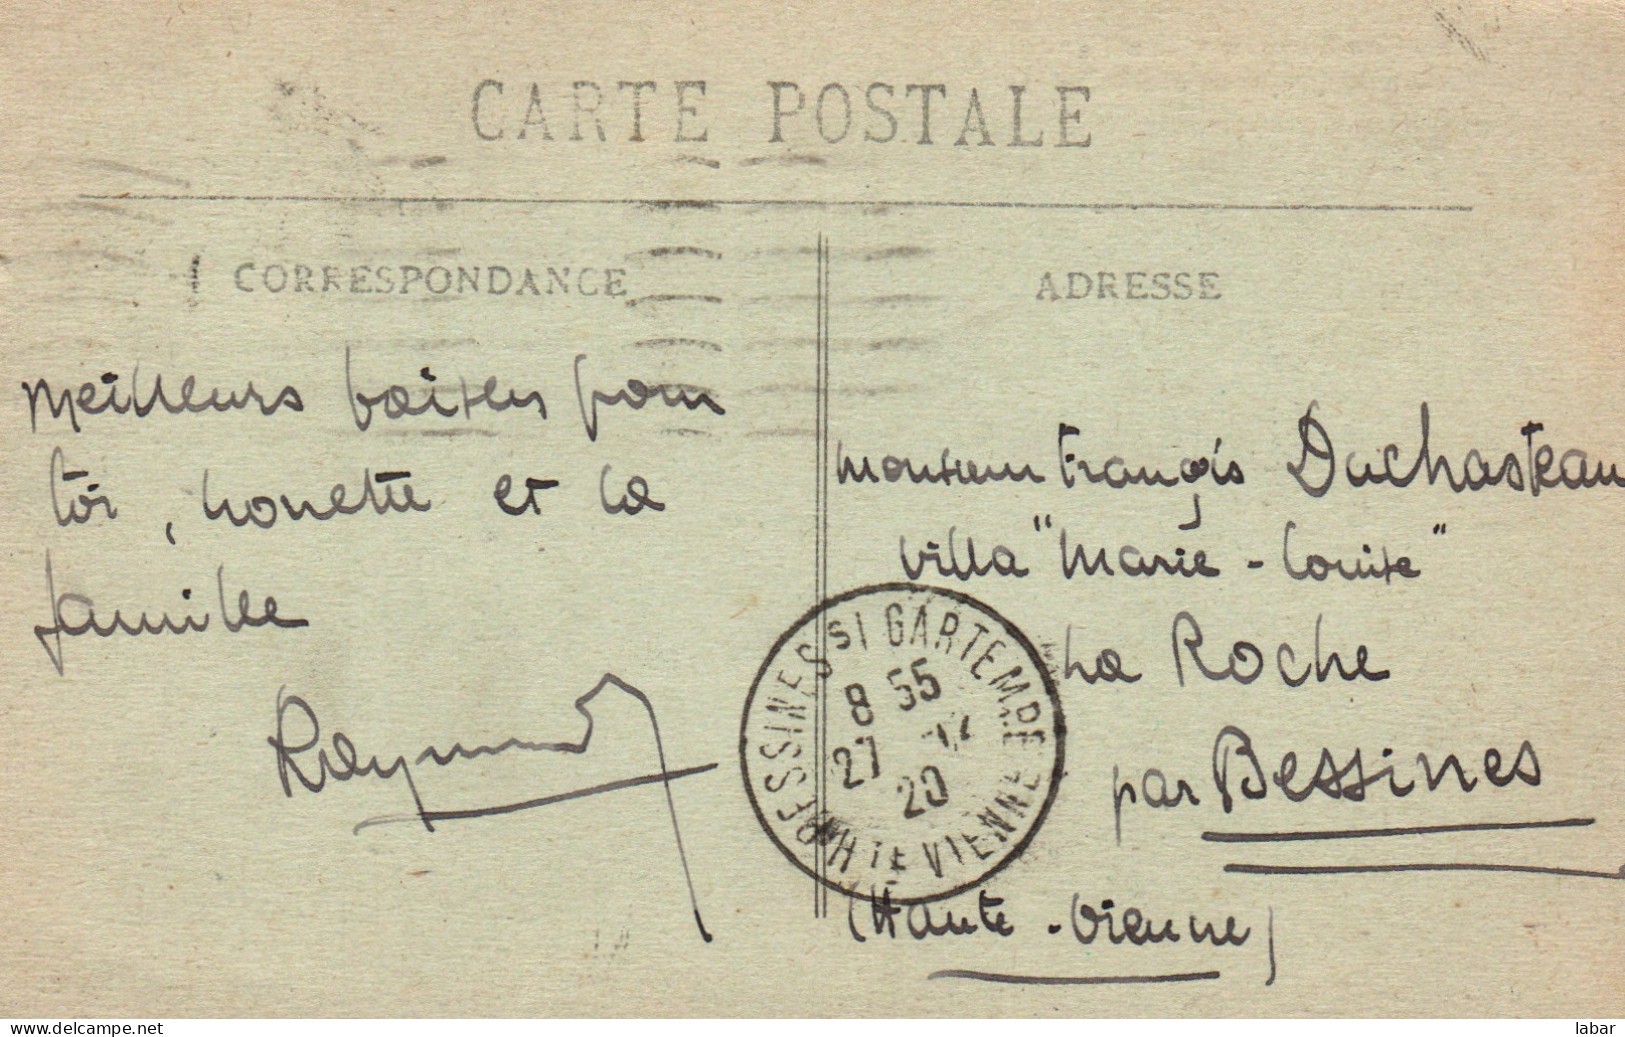 CARTE POSTALE
CORRESPONDANCE
meilleurs baisers pour
toi, nonette et la
famille
Raymond
ADRESSE
Monsieur François Duchasteau
villa "Marie-Louise"
La Roche
par Bessines
(Haute-Vienne)
BESSINES SI GARTEMPE
8 55
27 12
20
HTE VIENNE
www.delcampe.net
labar